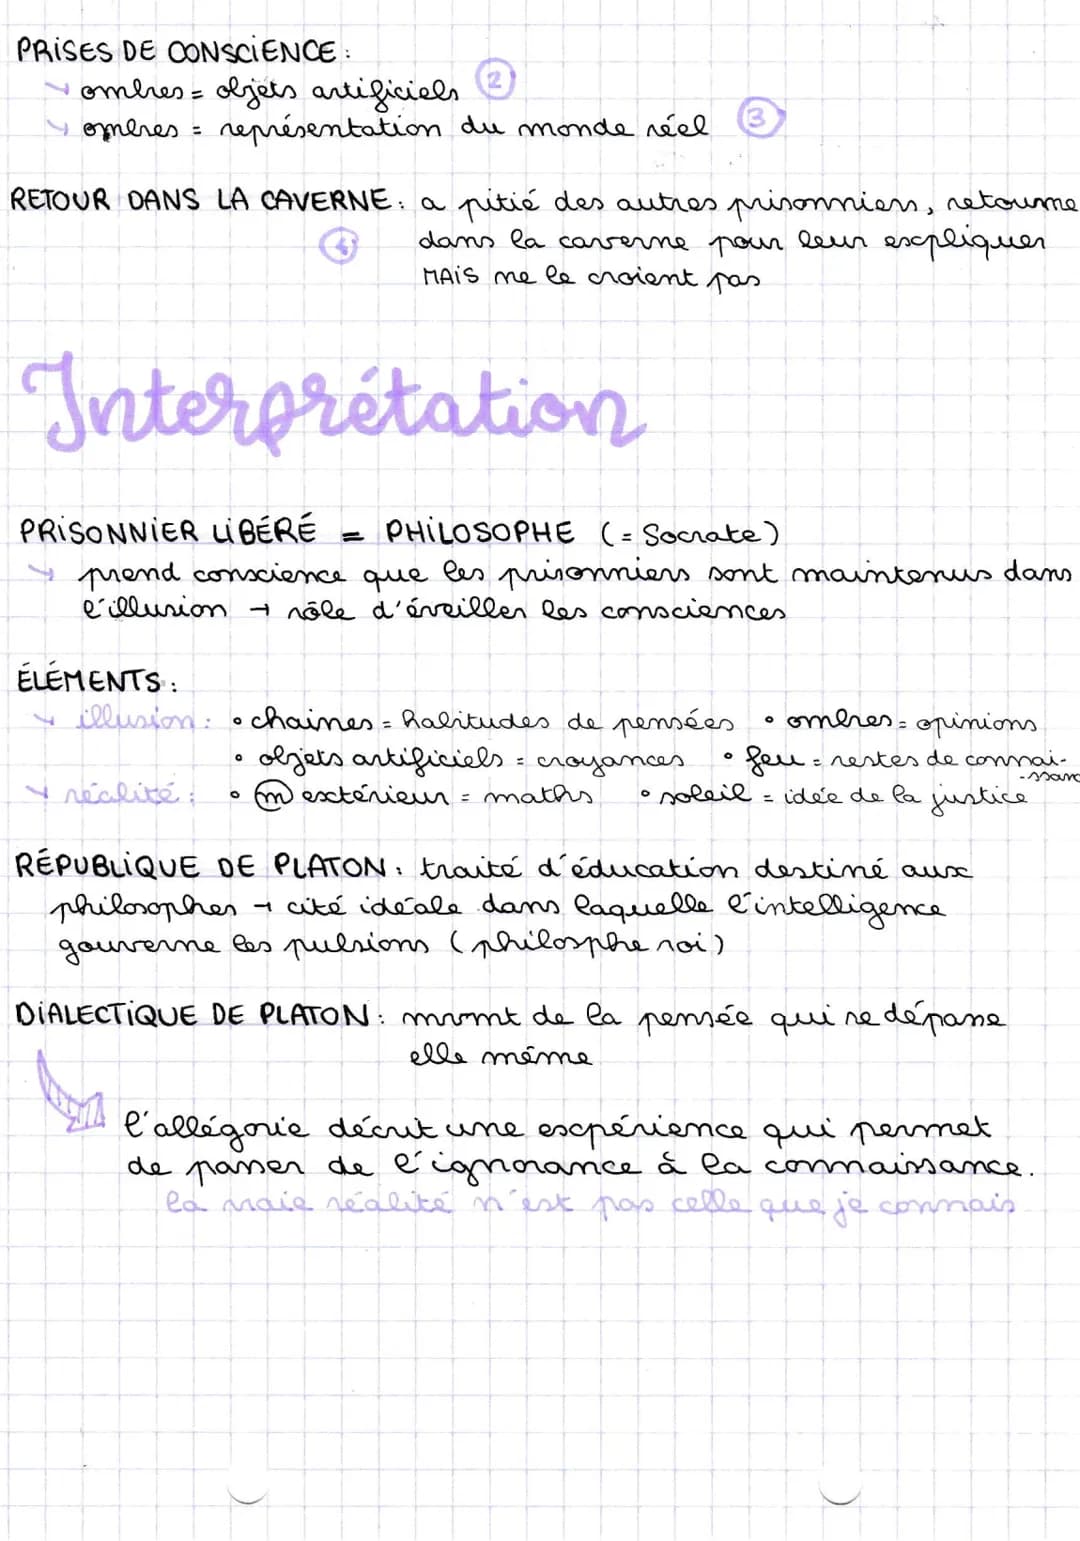 PRISES DE CONSCIENCE :
→ ombres = objets artificiels ②
→ ombres = représentation du monde réel ③
RETOUR DANS LA CAVERNE : a pitié des autres prisonniers, retourne
④ dans la caverne pour leur expliquer
MAIS ne le croient pas
Interprétation
PRISONNIER LIBÉRÉ = PHILOSOPHE (= Socrate)
→ prend conscience que les prisonniers sont maintenus dans
l'illusion → rôle d'éveiller les consciences
ÉLÉMENTS :
→ illusion : • chaines = habitudes de pensées • ombres = opinions
• objets artificiels = croyances • feu = restes de connai-
-ssanc
→ réalité : • ⓜ extérieur = maths • soleil = idée de la justice
RÉPUBLIQUE DE PLATON : traité d'éducation destiné aux
philosophes → cité idéale dans laquelle l'intelligence
gouverne les pulsions (philosphe roi)
DIALECTIQUE DE PLATON : mvmt de la pensée qui se dépasse
elle même
l'allégorie décrit une expérience qui permet
de passer de l'ignorance à la connaissance.
la vraie réalité n'est pas celle que je connais